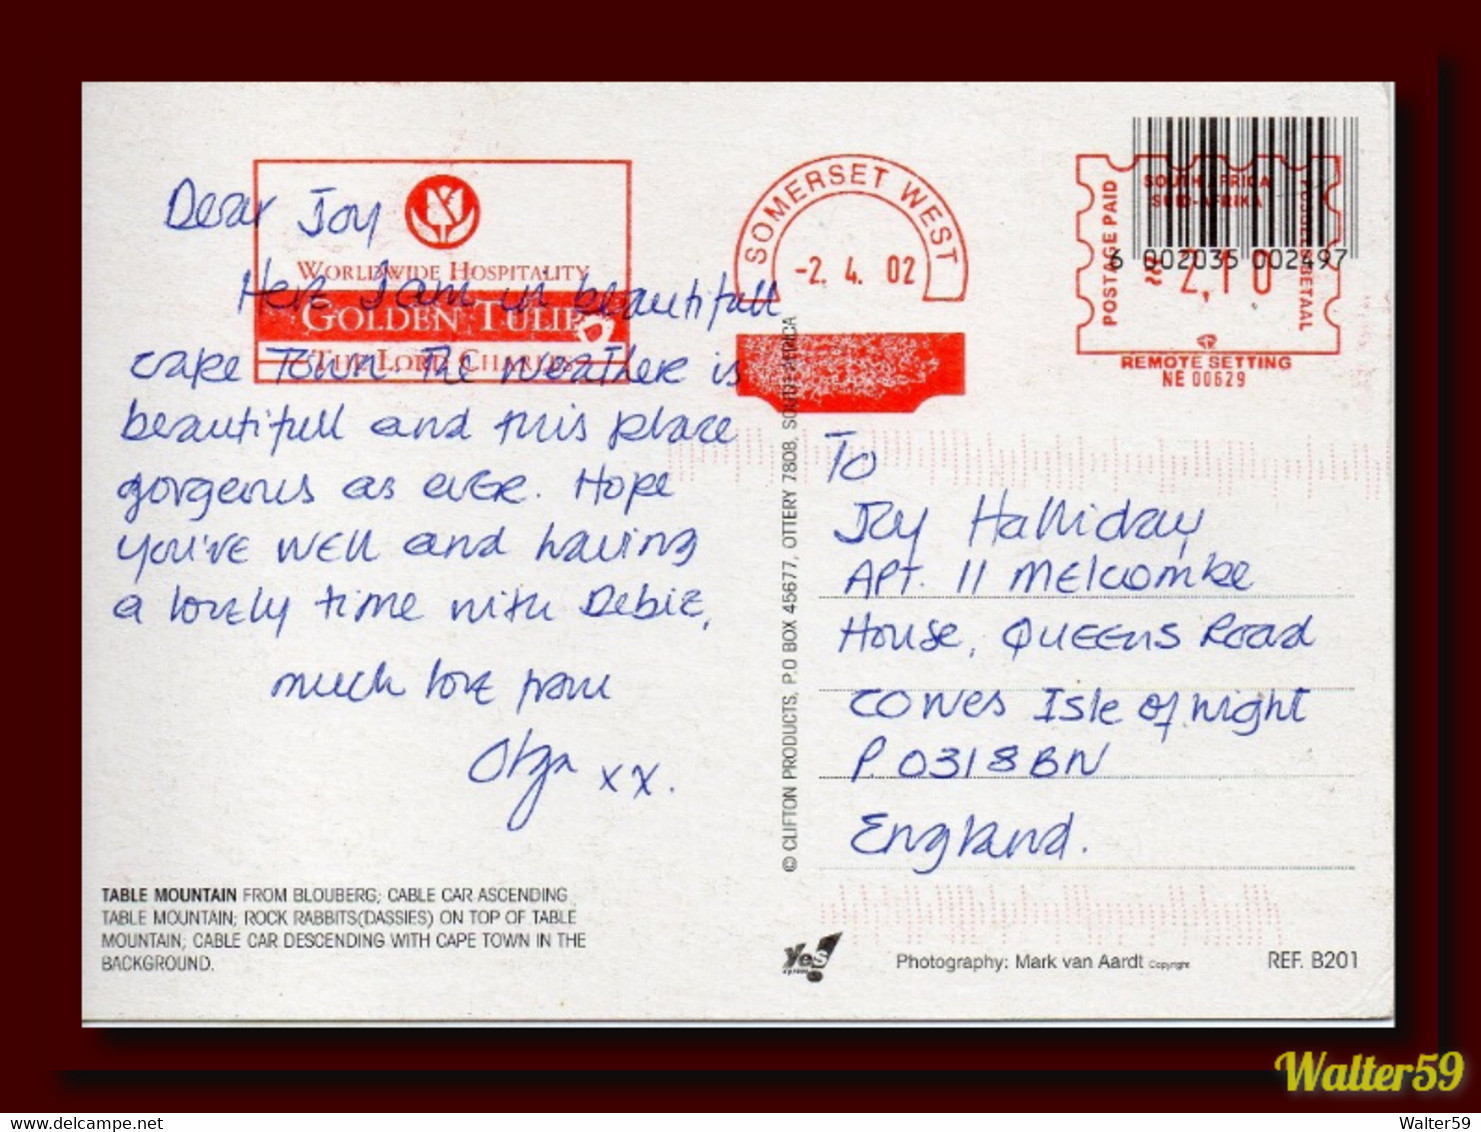 Dear Joy
Here I am in beautifull
Cape Town. The weather is
beautifull and this place
gorgeous as ever. Hope
you've well and having
a lovely time with Debie,
much love from
Olga xx.
WORLDWIDE HOSPITALITY
GOLDEN TULIP
THE LORD CHARLES
SOMERSET WEST
-2. 4. 02
6 002035 002497
SOUTH AFRICA
SUID-AFRIKA
POSTAGE PAID
POSGELD BETAAL
2,10
REMOTE SETTING
NE 00629
To
Joy Halliday
Apt. 11 Melcombe
House, Queens Road
Cowes Isle of Wight
P.O318BN
England.
© CLIFTON PRODUCTS, P.O BOX 45677, OTTERY 7808, SOUTH AFRICA
TABLE MOUNTAIN FROM BLOUBERG; CABLE CAR ASCENDING
TABLE MOUNTAIN; ROCK RABBITS(DASSIES) ON TOP OF TABLE
MOUNTAIN; CABLE CAR DESCENDING WITH CAPE TOWN IN THE
BACKGROUND.
Yes!
Photography: Mark van Aardt Copyright
REF. B201
Walter59
www.delcampe.net
Walter59